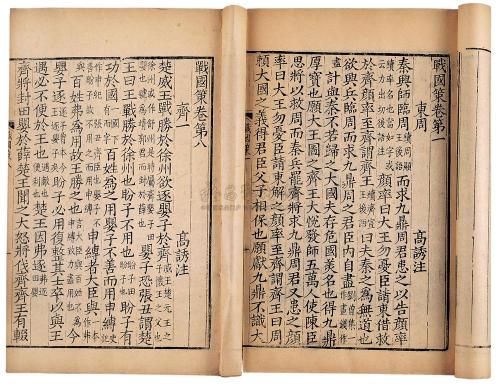 戰國策卷第一
東周 高誘注
秦興師臨周 續周顯王後語 而求九鼎周君患之以告顏率
顏率曰大王勿憂臣請東借救
於齊顏率至齊 續齊宣王後語 謂齊王曰夫秦之為無道也
欲興兵臨周而求九鼎周之君臣內自盡
計與秦不若歸之大國夫存危國美名也得九鼎
厚寶也願大王圖之齊王大悅發師五萬人使陳臣
思將以救周而秦兵罷齊將求九鼎周君又患之顏
率曰大王勿憂臣請東解之顏率至齊謂齊王曰周
賴大國之義得君臣父子相保也願獻九鼎不識大
戰國策卷第八
齊一 高誘注
楚威王戰勝於徐州欲逐嬰子於齊
嬰子恐張丑謂楚
王曰王戰勝於徐州也盼子不用也 盼子有
功於國 百姓為之用嬰子不善而用申縛
申縛者大臣與
百姓弗為用故王勝之也 今
嬰子逐 盼子必用復整其士卒以與王
遇必不便於王也 楚王因弗逐
齊將封田嬰於薛楚王聞之大怒將伐齊齊王有輟